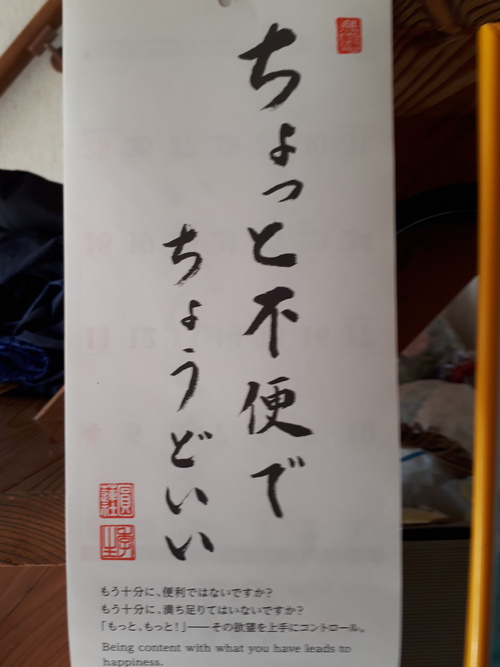 ちょっと不便で
ちょうどいい
もう十分に、便利ではないですか?
もう十分に、満ち足りてはいないですか?
「もっと、もっと!」――その欲望を上手にコントロール。
Being content with what you have leads to
happiness.